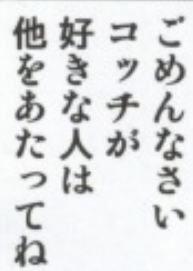 ごめんなさい
コッチが
好きな人は
他をあたってね